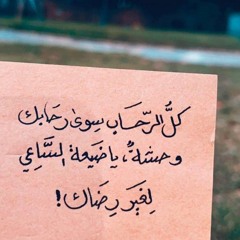 كلُّ الرّحَاب سِوىٰ رحَابك
وحشةٌ، يا ضَيعة السَّاعِي
لِغَيرِ رِضَاك!